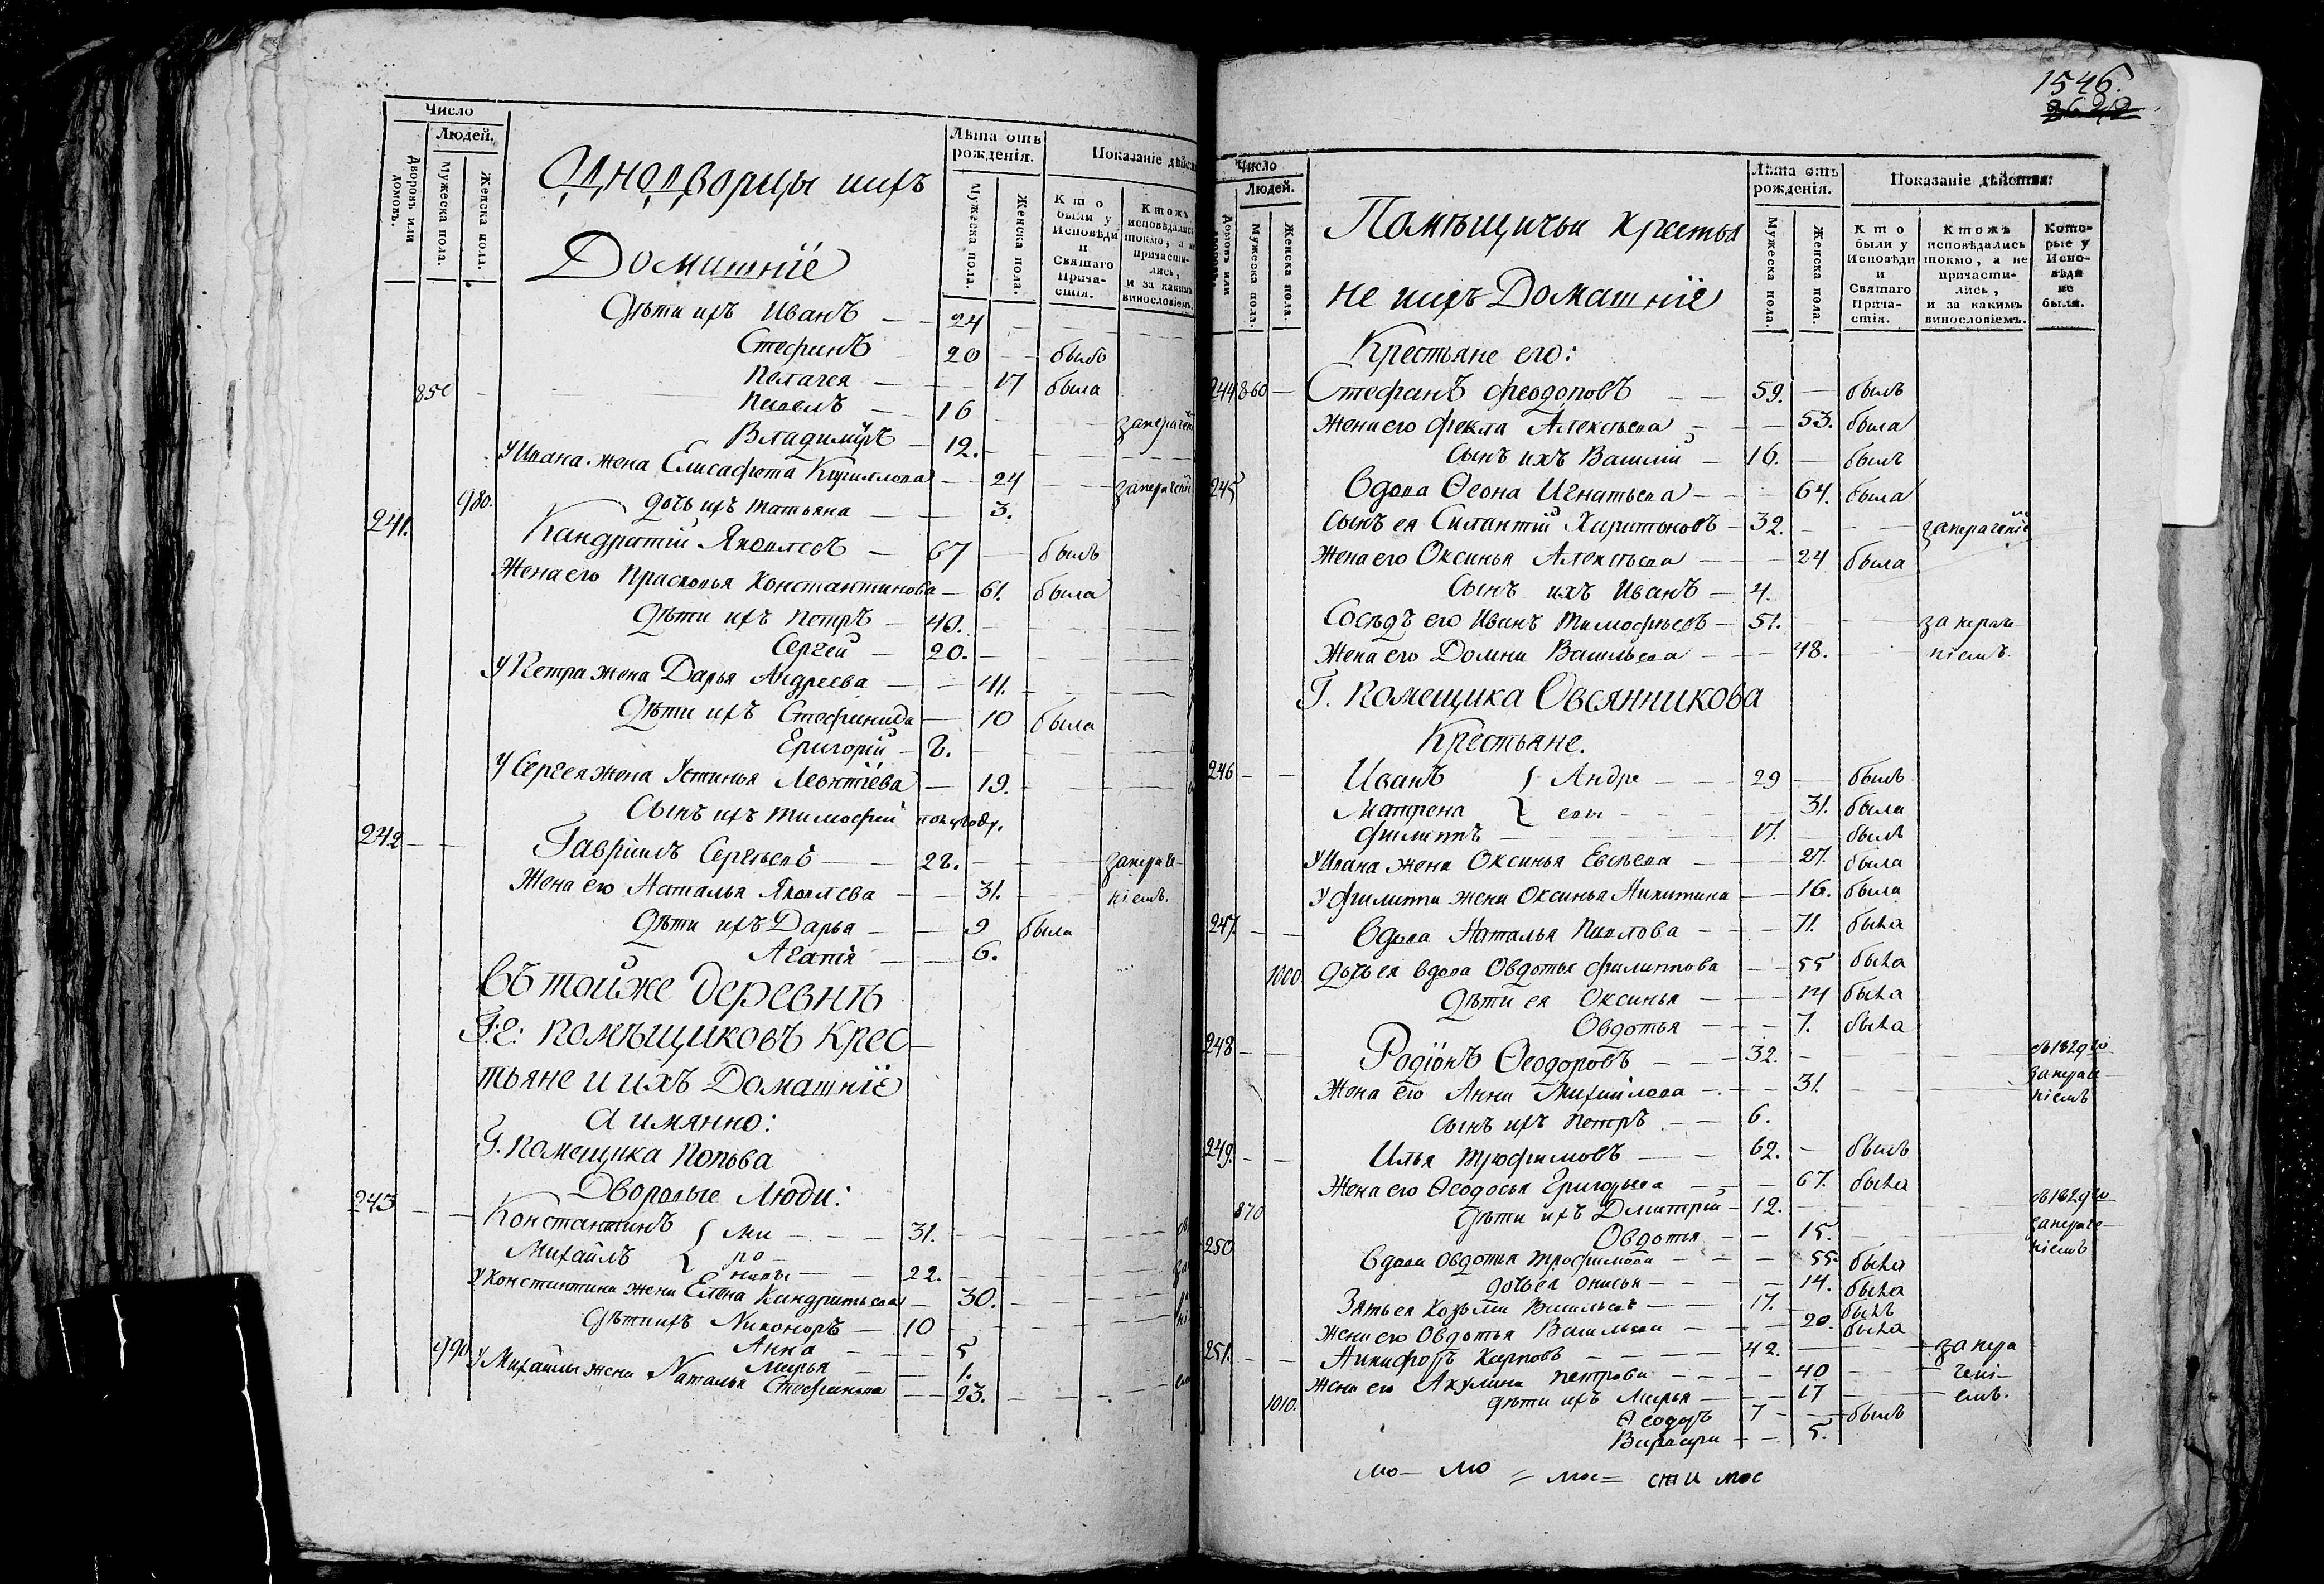 Число
Людей.
Дворовъ или домовъ.
Мужеска пола.
Женска пола.
Однодворцы ихъ
Домашнїе
Лѣта отъ рожденія.
Мужеска пола.
Женска пола.
Показаніе дѣйст
Кто были у Исповѣди и Святаго Прича-стія.
Ктожъ исповѣдались токмо, а не причасти-лись, и за какимъ винословіемъ.
Дѣти ихъ Иванъ — — 24 — —
Стефанъ 20 — — былъ
Пелагея — — 17 была
850 Павелъ — 16 — —
Владимиръ — 12. — —
У Ивана жена Елисафета Кириллова — — 24 — —
980. дочь ихъ Татьяна — — 3.
241. Кандратій Яковлевъ — 67 — былъ
Жена его Прасковья Константинова — 61. была
Дѣти ихъ Петръ — 40. — —
Сергей — 20. — —
У Петра жена Дарья Андреева — — 41. — —
Дѣти ихъ Стефанида — 10 была
Григорій — 8. — —
У Сергея жена Устинья Леонтїева — 19. — —
Сынъ ихъ Тимофей полугоду.
242 — — Гавріилъ Сергѣевъ — — 28. — — запраще-
Жена его Наталья Яковлева — — 31. — — ніемъ.
Дѣти ихъ Дарья — — 9 была
Агапія — — 6.
Въ тойже деревнѣ
Г:г: помѣщиковъ Крес-
тьяне и ихъ Домашнїе
а имянно:
Г. Помещика Попова
Дворовые Люди:
243 — — Константинъ { Ми — — — 31. — —
Михайлъ { ро-
новы — — 22. — —
У Константина жена Елена Кандратьева — 30. — —
Дѣти ихъ Никоноръ — 10 — —
Анна — — 5
990 Марья — — 1.
У Михайлы жена Наталья Стефанова — — 23. — —
1546.
Число
Людей.
Домовъ или
Мужеска пола.
Женска пола.
Помѣщичьи Крестья
не ихъ Домашнїе
Лѣта отъ рожденія.
Мужеска пола.
Женска пола.
Показаніе дѣйства:
Кто были у Исповѣди и Святаго Прича-стія.
Ктожъ исповѣдались токмо, а не причасти-лись, и за какимъ винословіемъ.
Кото-рые у Испо-вѣди не были.
Крестьяне его:
244 860 — Стефанъ Феодоповъ — — 59. — былъ
Жена его Фекла Алексѣева — — 53. была
Сынъ ихъ Василій — 16. — былъ
245 Вдова Ѳеона Игнатьева — — 64. была
Сынъ ея Силантій Харитоновъ — 32. — — запраченїе
Жена его Оксинья Алексѣева — — 24 была
Сынъ ихъ Иванъ — 4.
Сосѣдъ его Иванъ Тимофѣевъ — 51. — — запраче-
Жена его Домна Васильева — — 48. — — ніемъ.
Г. Помещика Овсянникова
Крестьяне.
246 — — Иванъ } Андре — — 29 — былъ
Матрена } евы — — — 31. была
Филиппъ — — — 17. — былъ
У Ивана жена Оксинья Евсѣева — — 27. была
У Филиппа жена Оксинья Никитина — — 16. была
247. — — Вдова Наталья Павлова — — — 71. была
1000 Дочь ея вдова Овдотья Филиппова — — 55 была
Дѣти ея Оксинья — — — 14 была
Овдотья — — — 7. была
248 — — Родїонъ Ѳеодоровъ — — — 32. — —
Жена его Анна Михайлова — — 31. — — запраче-
ніемъ
Сынъ ихъ Петръ — — 6.
249. — — Илья Трофимовъ — — 62. — былъ
Жена его Ѳеодосья Григорьева — — 67. была
870 Дѣти ихъ Дмитрій — 12. — —
Овдотья — — 15. — — запраче-
ніемъ
250 Вдова Овдотья Трофимова — — 55. была
дочь ея Анисья — — — 14. была
Зять ея Козьма Васильевъ — — 17. — былъ
Жена его Овдотья Васильева — — 20. была
251. — — Никифоръ Карповъ — — — 42. — — запра
Жена его Акулина Петрова — — — 40 — чені-
1010. дѣти ихъ Марья — — 17 — емъ.
Ѳеодоръ 7 — — былъ
Варвара — — 5.